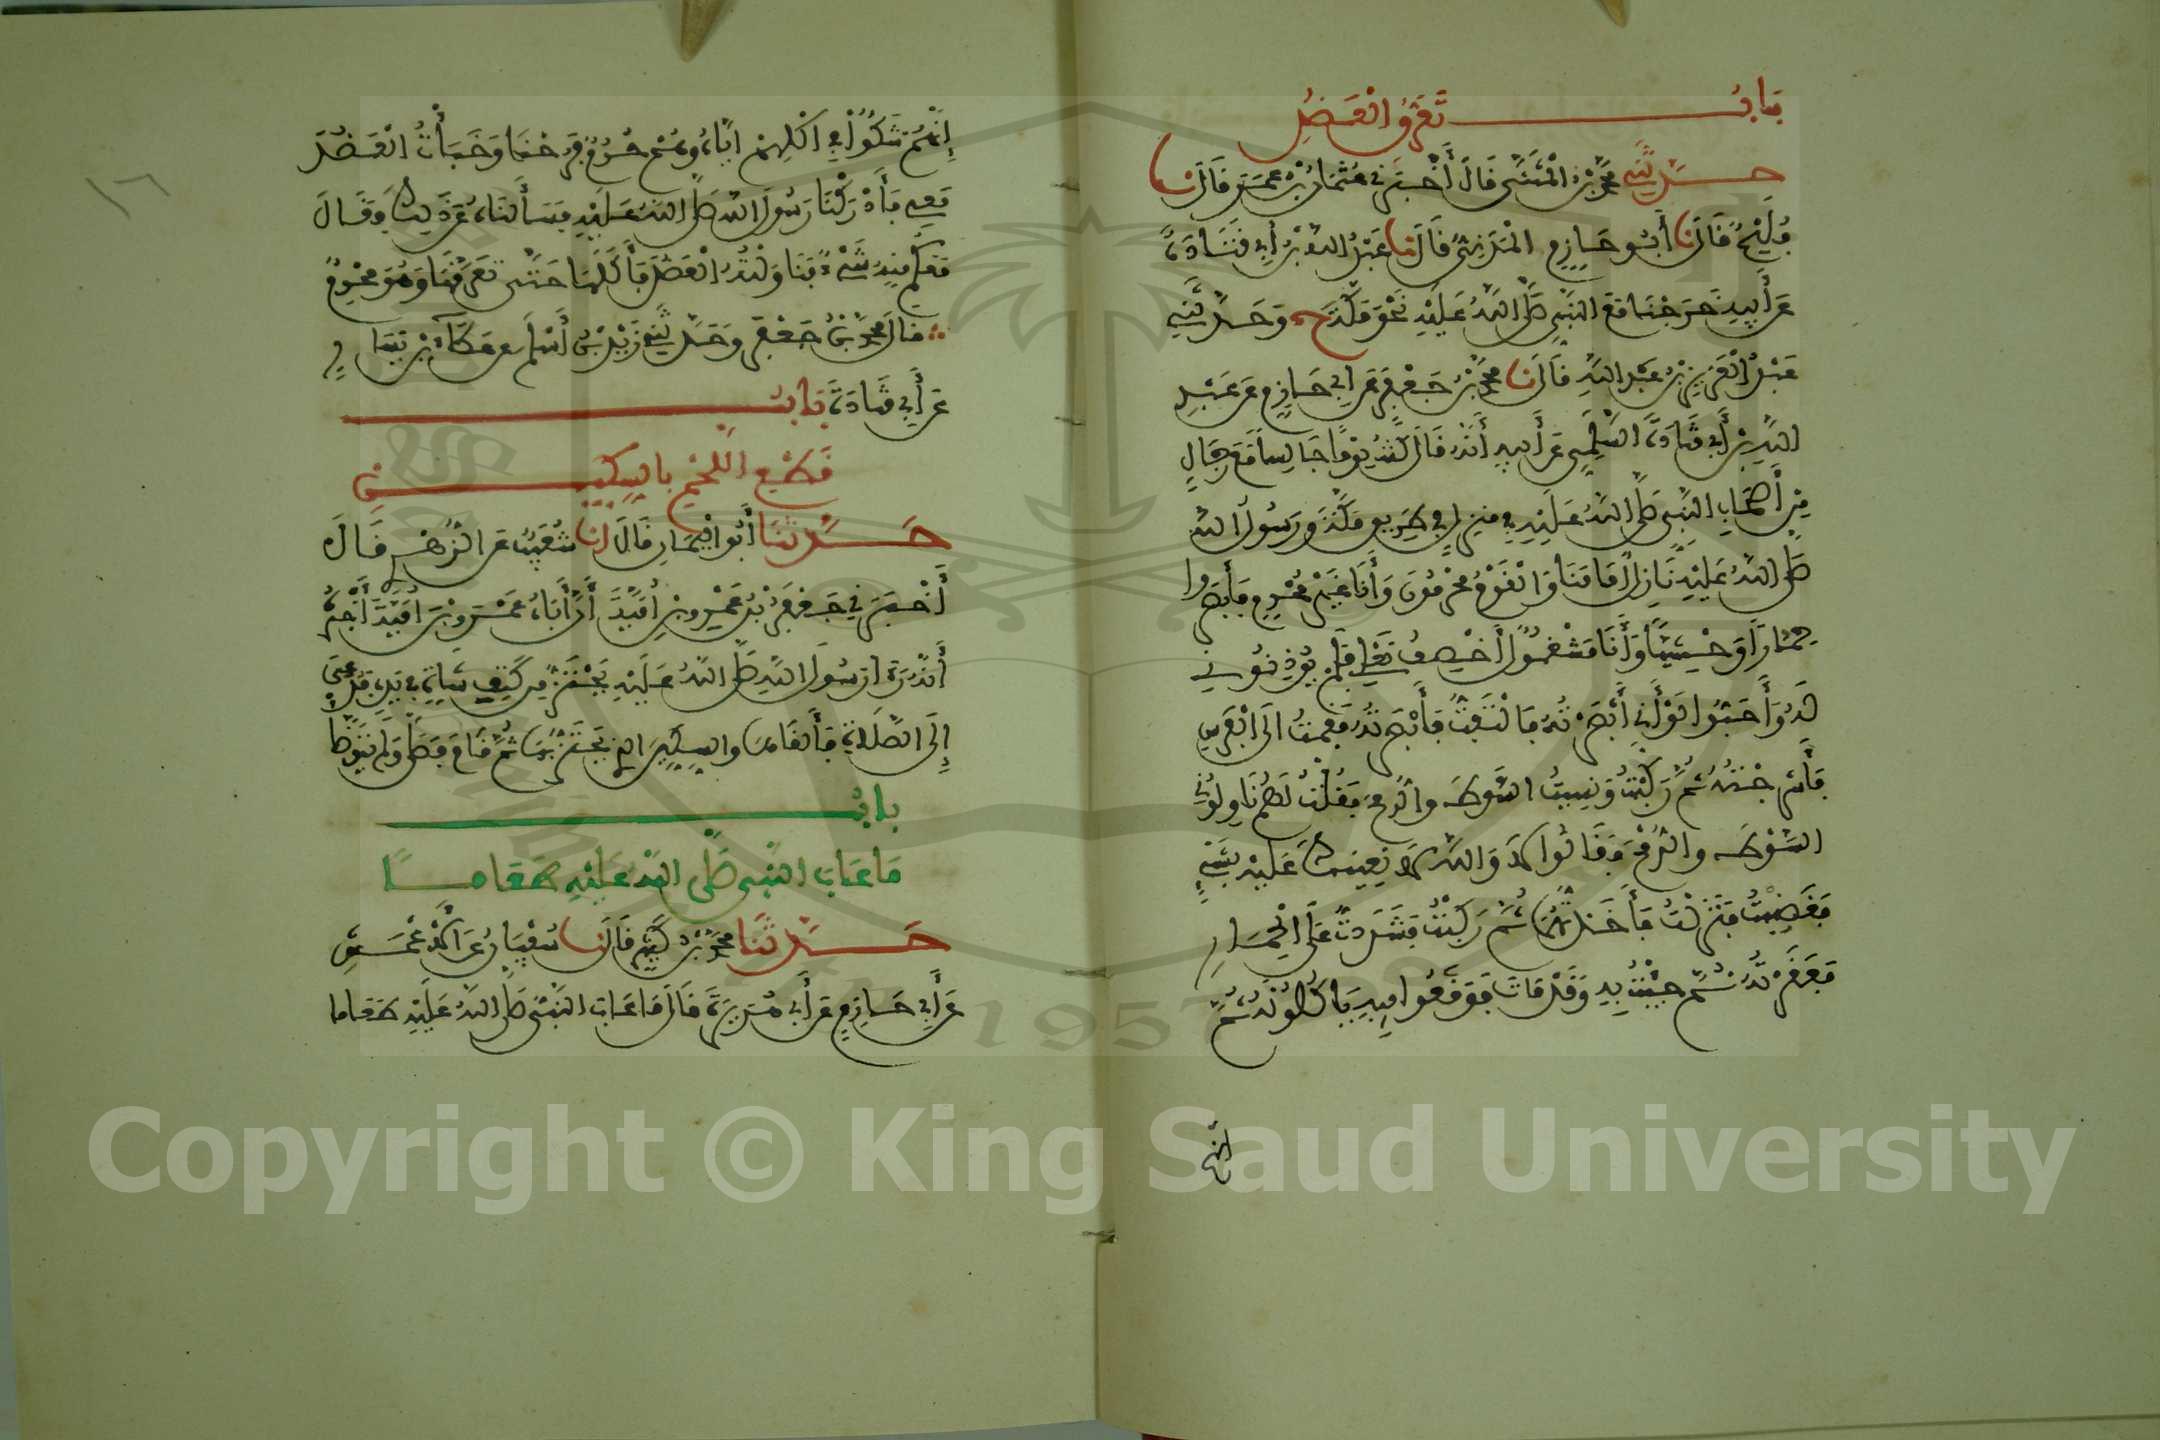 باب تعرق العضد
حدثني محمد بن المثنى قال أخبرني عثمان بن عمر قال نا
فليح قال نا أبو حازم المدني قال نا عبد الله بن أبي قتادة
عن أبيه خرجنا مع النبي صلى الله عليه نحو مكة ح وحدثني
عبد العزيز بن عبد الله قال نا محمد بن جعفر عن أبي حازم عن عبد
الله بن أبي قتادة السلمي عن أبيه أنه قال كنت يوما جالسا مع رجال
من أصحاب النبي صلى الله عليه في منزل في طريق مكة ورسول الله
صلى الله عليه نازل أمامنا والقوم محرمون وأنا غير محرم فأبصروا
حمارا وحشيا وأنا مشغول أخصف نعلي فلم يؤذنوني
له وأحبوا لو أني أبصرته فالتفت فأبصرته فقمت الى الفرس
فأسرجته ثم ركبت ونسيت السوط والرمح فقلت لهم ناولوني
السوط والرمح فقالوا لا والله لا نعينك عليه بشيء
فغضبت فنزلت فأخذتهما ثم ركبت فشددت على الحمار
فعقرته ثم جئت به وقد مات فوقعوا فيه يأكلونه ثم
إنهم
١٦
إنهم شكوا في أكلهم إياه وهم حرم فرحنا وخبأت العضد
معي فأدركنا رسول الله صلى الله عليه فسألناه عن ذلك فقال
معكم منه شيء فناولته العضد فأكلها حتى تعرقها وهو محرم
قال محمد بن جعفر وحدثني زيد بن أسلم عن عطاء بن يسار
عن أبي قتادة باب
قطع اللحم بالسكين
حدثنا أبو اليمان قال انا شعيب عن الزهري قال
أخبرني جعفر بن عمرو بن أمية أن أباه عمرو بن أمية أخبره
أنه رءا رسول الله صلى الله عليه يحتز من كتف شاة في يده فدعي
إلى الصلاة فألقاها والسكين التي يحتز بها ثم قام فصلى ولم يتوضأ
باب
ما عاب النبي صلى الله عليه طعاما
حدثنا محمد بن كثير قال نا سفيان عن الأعمش
عن أبي حازم عن أبي هريرة قال ما عاب النبي صلى الله عليه طعاما
Copyright © King Saud University
1957